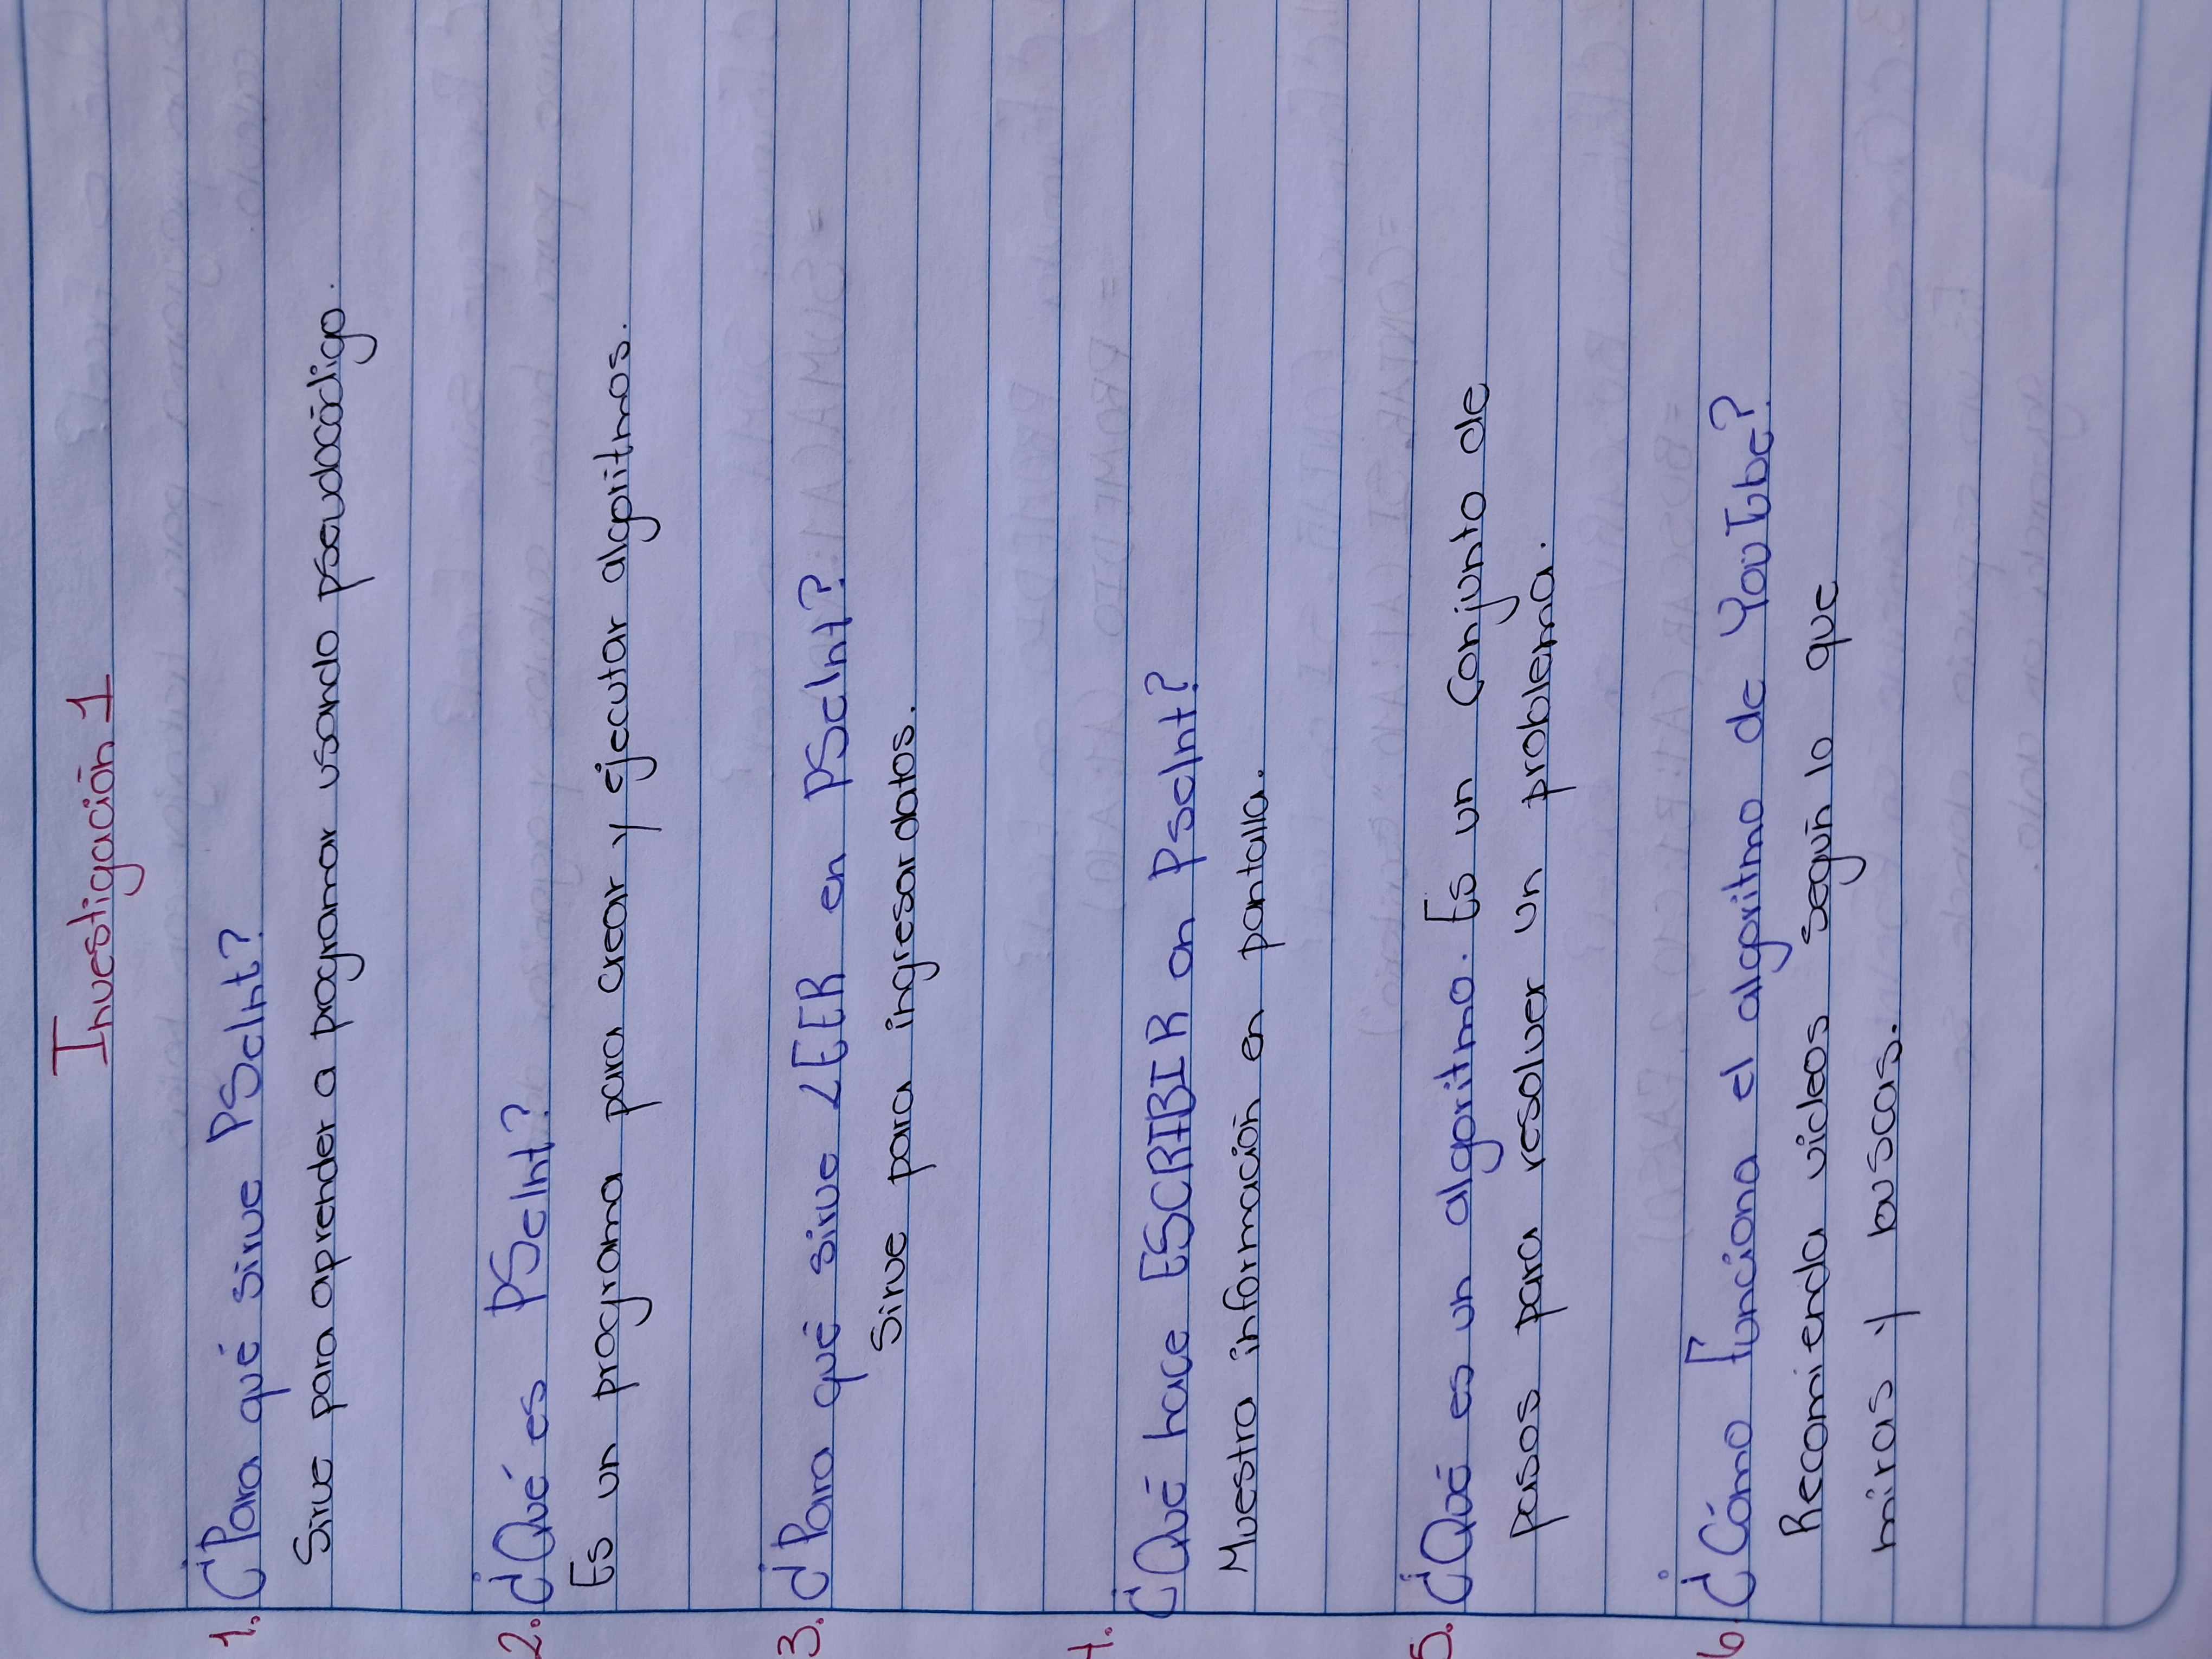 Investigación 1
1. ¿Para qué sirve PSeInt?
Sirve para aprender a programar usando pseudocódigo.
2. ¿Qué es PSeInt?
Es un programa para crear y ejecutar algoritmos.
3. ¿Para qué sirve LEER en PSeInt?
Sirve para ingresar datos.
4. ¿Qué hace ESCRIBIR en PseInt?
Muestra información en pantalla.
5. ¿Qué es un algoritmo. Es un conjunto de
pasos para resolver un problema.
6. ¿Cómo funciona el algoritmo de YouTube?
Recomienda videos según lo que
miras y buscas.